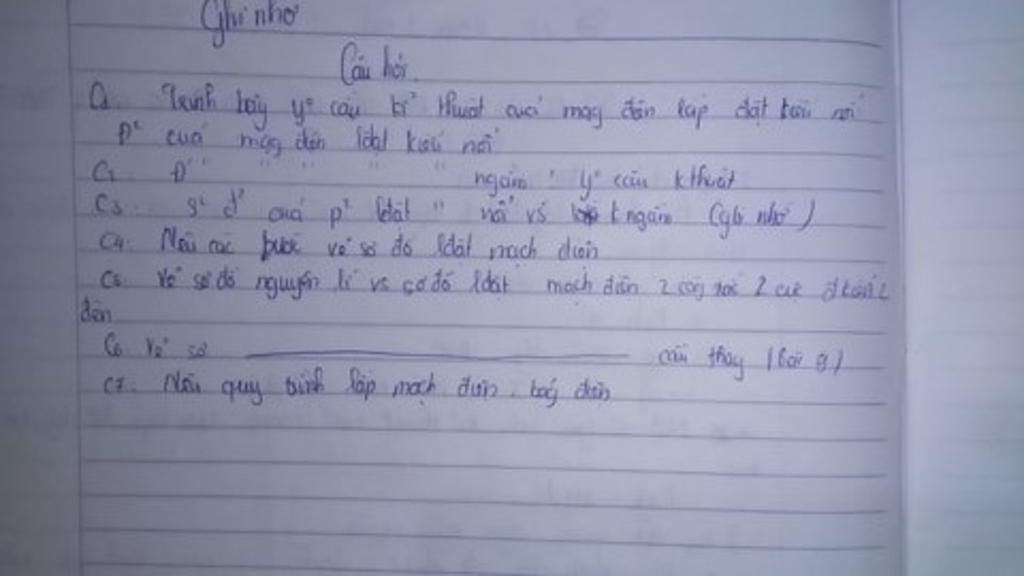 Ghi nhớ
Câu hỏi.
C1. Trình bày y² cầu kĩ² thuật của mạg điện lắp đặt kiểu nổi
p² của mạg điện lđặt kiểu nổi
C2. Đ " " " " " ngầm y² cầu kthuật
C3. của p² lđặt " nổi vs k ngầm (ghi nhớ)
C4. Nêu các bước vẽ sơ đồ lđặt mạch điện
C5. Vẽ sơ đồ nguyên lí vs sơ đồ lđặt mạch điện 2 côg tắc 2 cực đkhiển 2
đèn
C6. Vẽ sơ ——— cầu thag (bài 8)
C7. Nêu quy trình lắp mạch điện, bảg điện